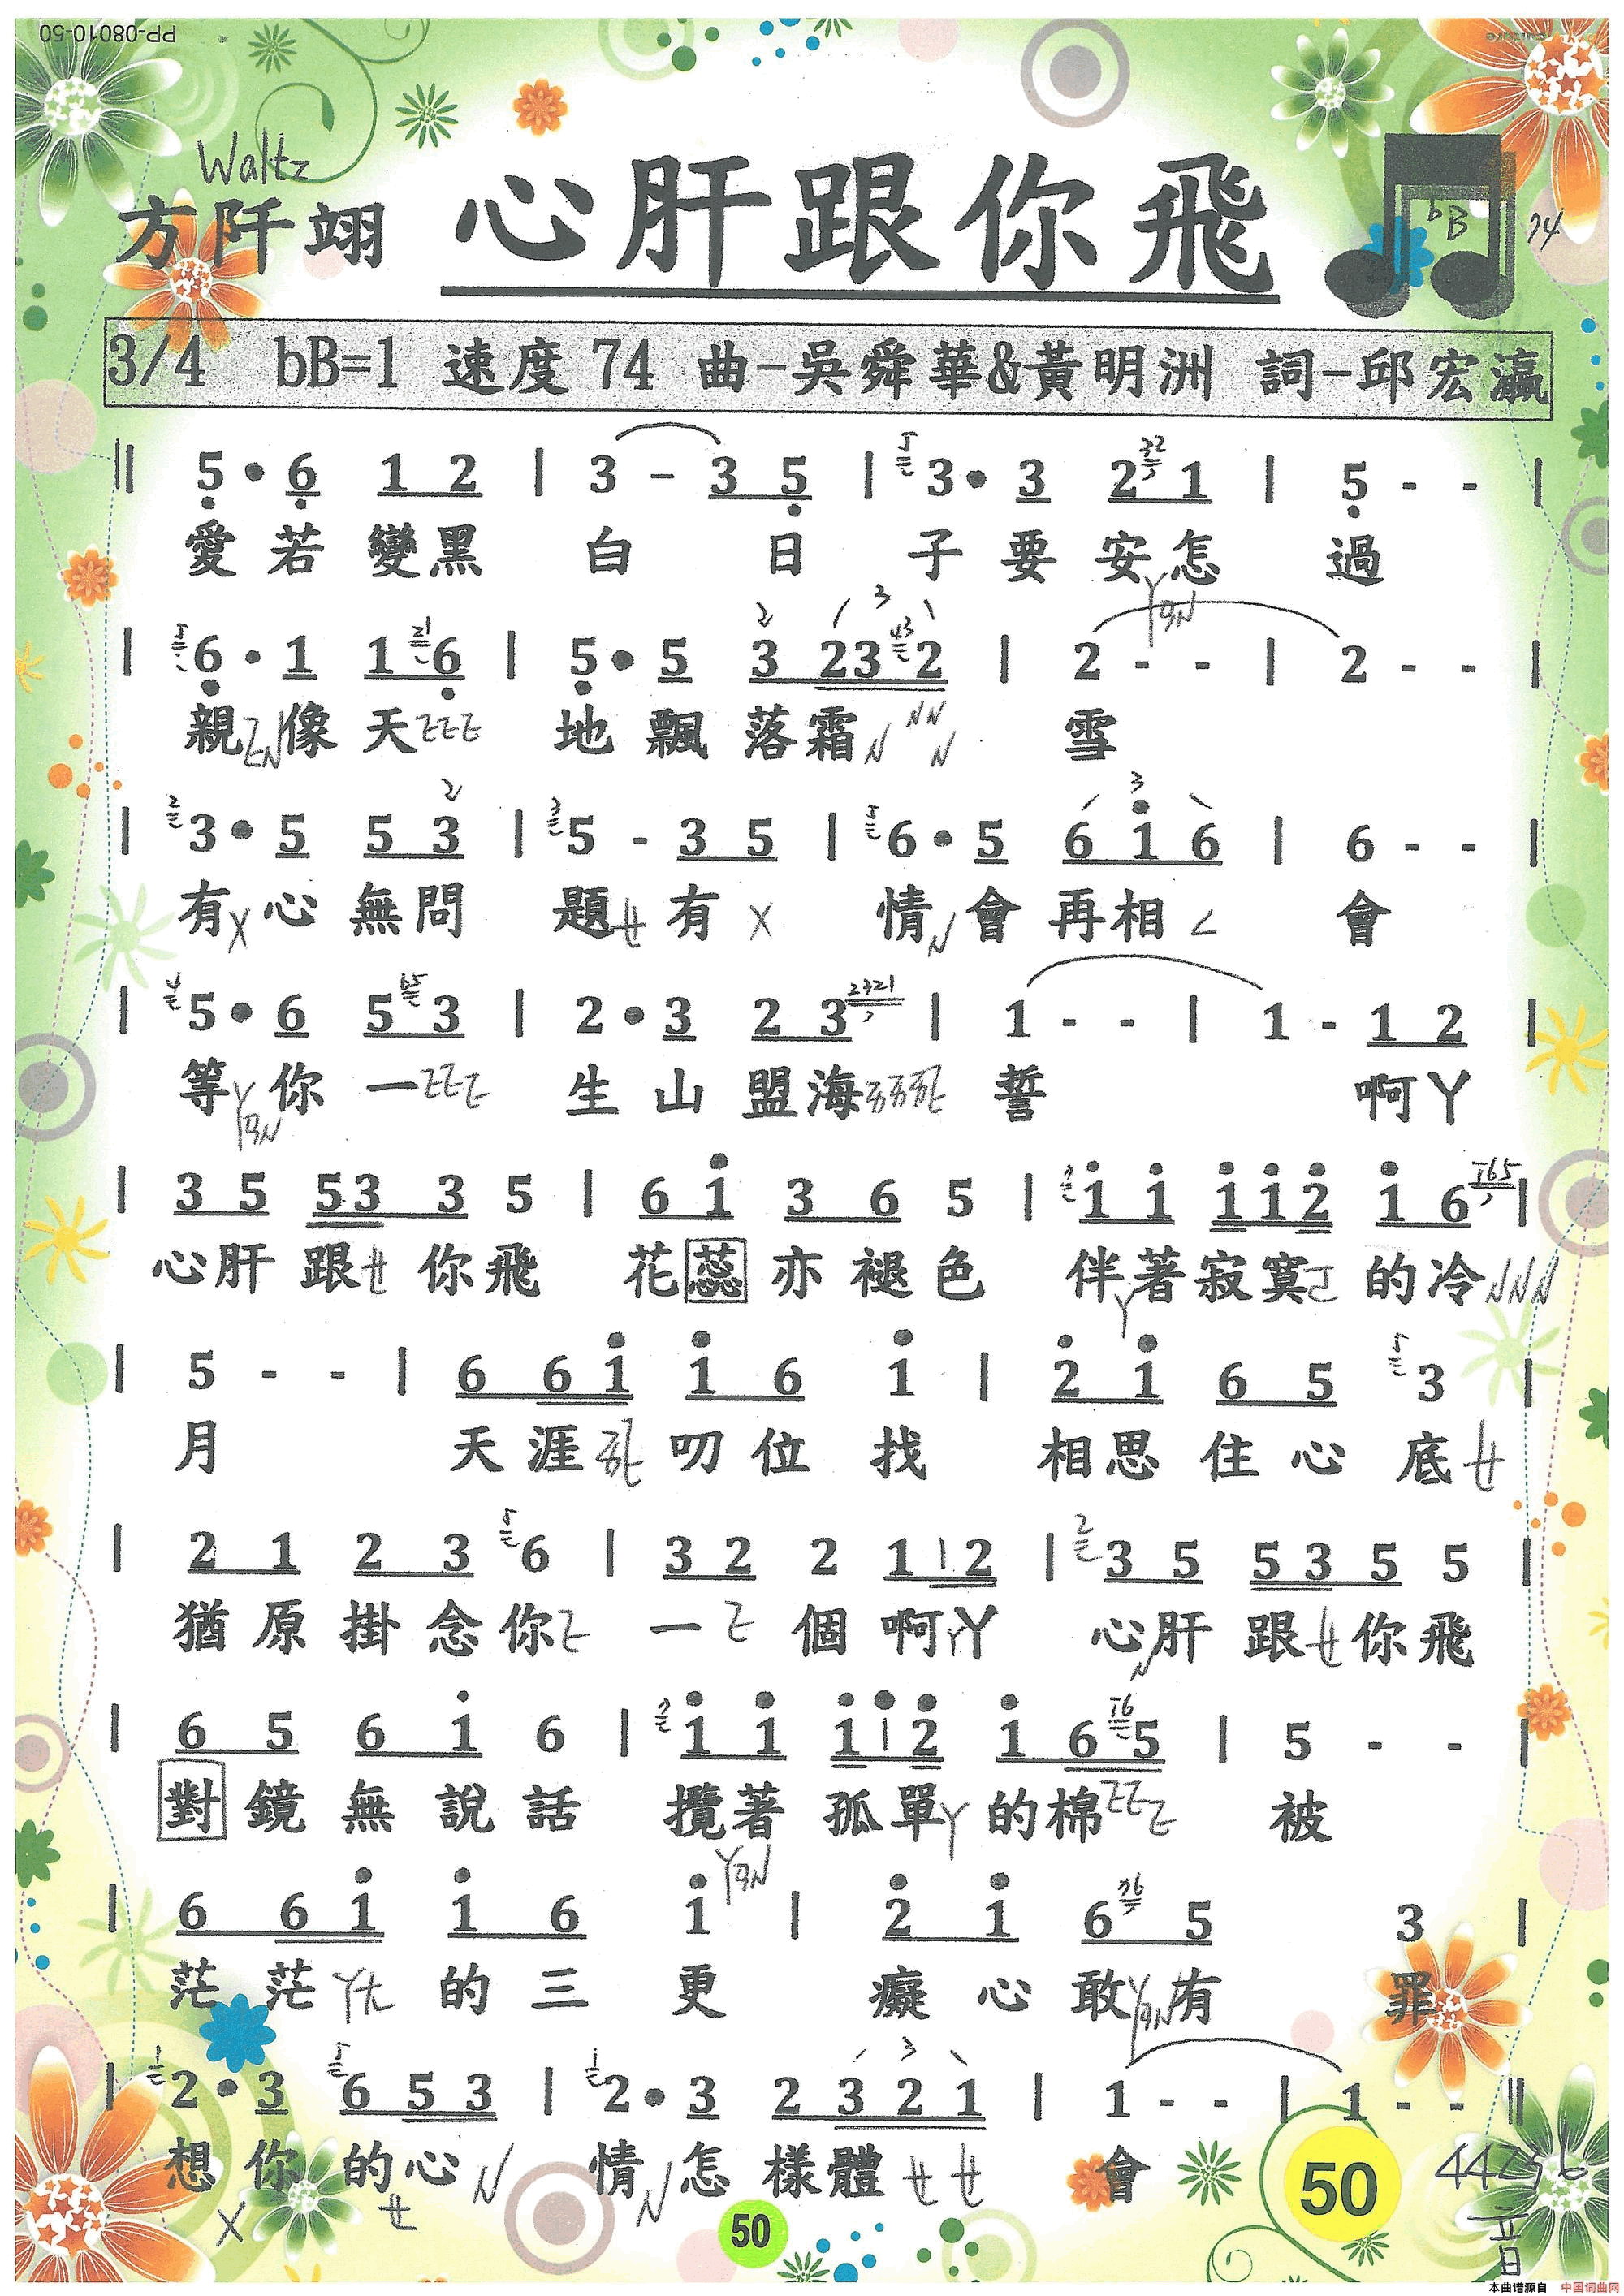 PP-08010-50
Waltz
方阡翊 心肝跟你飛 bB 74
3/4 bB=1 速度 74 曲-吳舜華&黃明洲 詞-邱宏瀛
‖ 5 • 6 1 2 | 3 - 3 5 | 3 • 3 2 1 | 5 - - |
愛若變黑 白 日 子要安怎 過
| 6 • 1 1 6 | 5 • 5 3 2 3 2 | 2 - - | 2 - - |
親像天 地飄落霜 雪
| 3 • 5 5 3 | 5 - 3 5 | 6 • 5 6 1 6 | 6 - - |
有心無問 題有 情會再相 會
| 5 • 6 5 3 | 2 • 3 2 3 | 1 - - | 1 - 1 2 |
等你一 生山盟海 誓 啊ㄚ
| 3 5 5 3 3 5 | 6 1 3 6 5 | 1 1 1 1 2 1 6 |
心肝跟ㄝ你飛 花蕊亦褪色 伴著寂寞ㄛ的冷
| 5 - - | 6 6 1 1 6 1 | 2 1 6 5 3 |
月 天涯 叨位找 相思住心底ㄝ
| 2 1 2 3 6 | 3 2 2 1 1 2 | 3 5 5 3 5 5 |
猶原掛念你 一 個啊ㄚ 心肝跟ㄝ你飛
| 6 5 6 1 6 | 1 1 1 1 2 1 6 5 | 5 - - |
對鏡無說話 攬著孤單ㄚ的棉 被
| 6 6 1 1 6 1 | 2 1 6 5 3 |
茫茫 的三更 癡心敢有 罪
| 2 • 3 6 5 3 | 2 • 3 2 3 2 1 | 1 - - | 1 - - ‖
想你的心 情怎樣體ㄝㄝ 會
50
50
音
本曲谱源自 中国词曲网